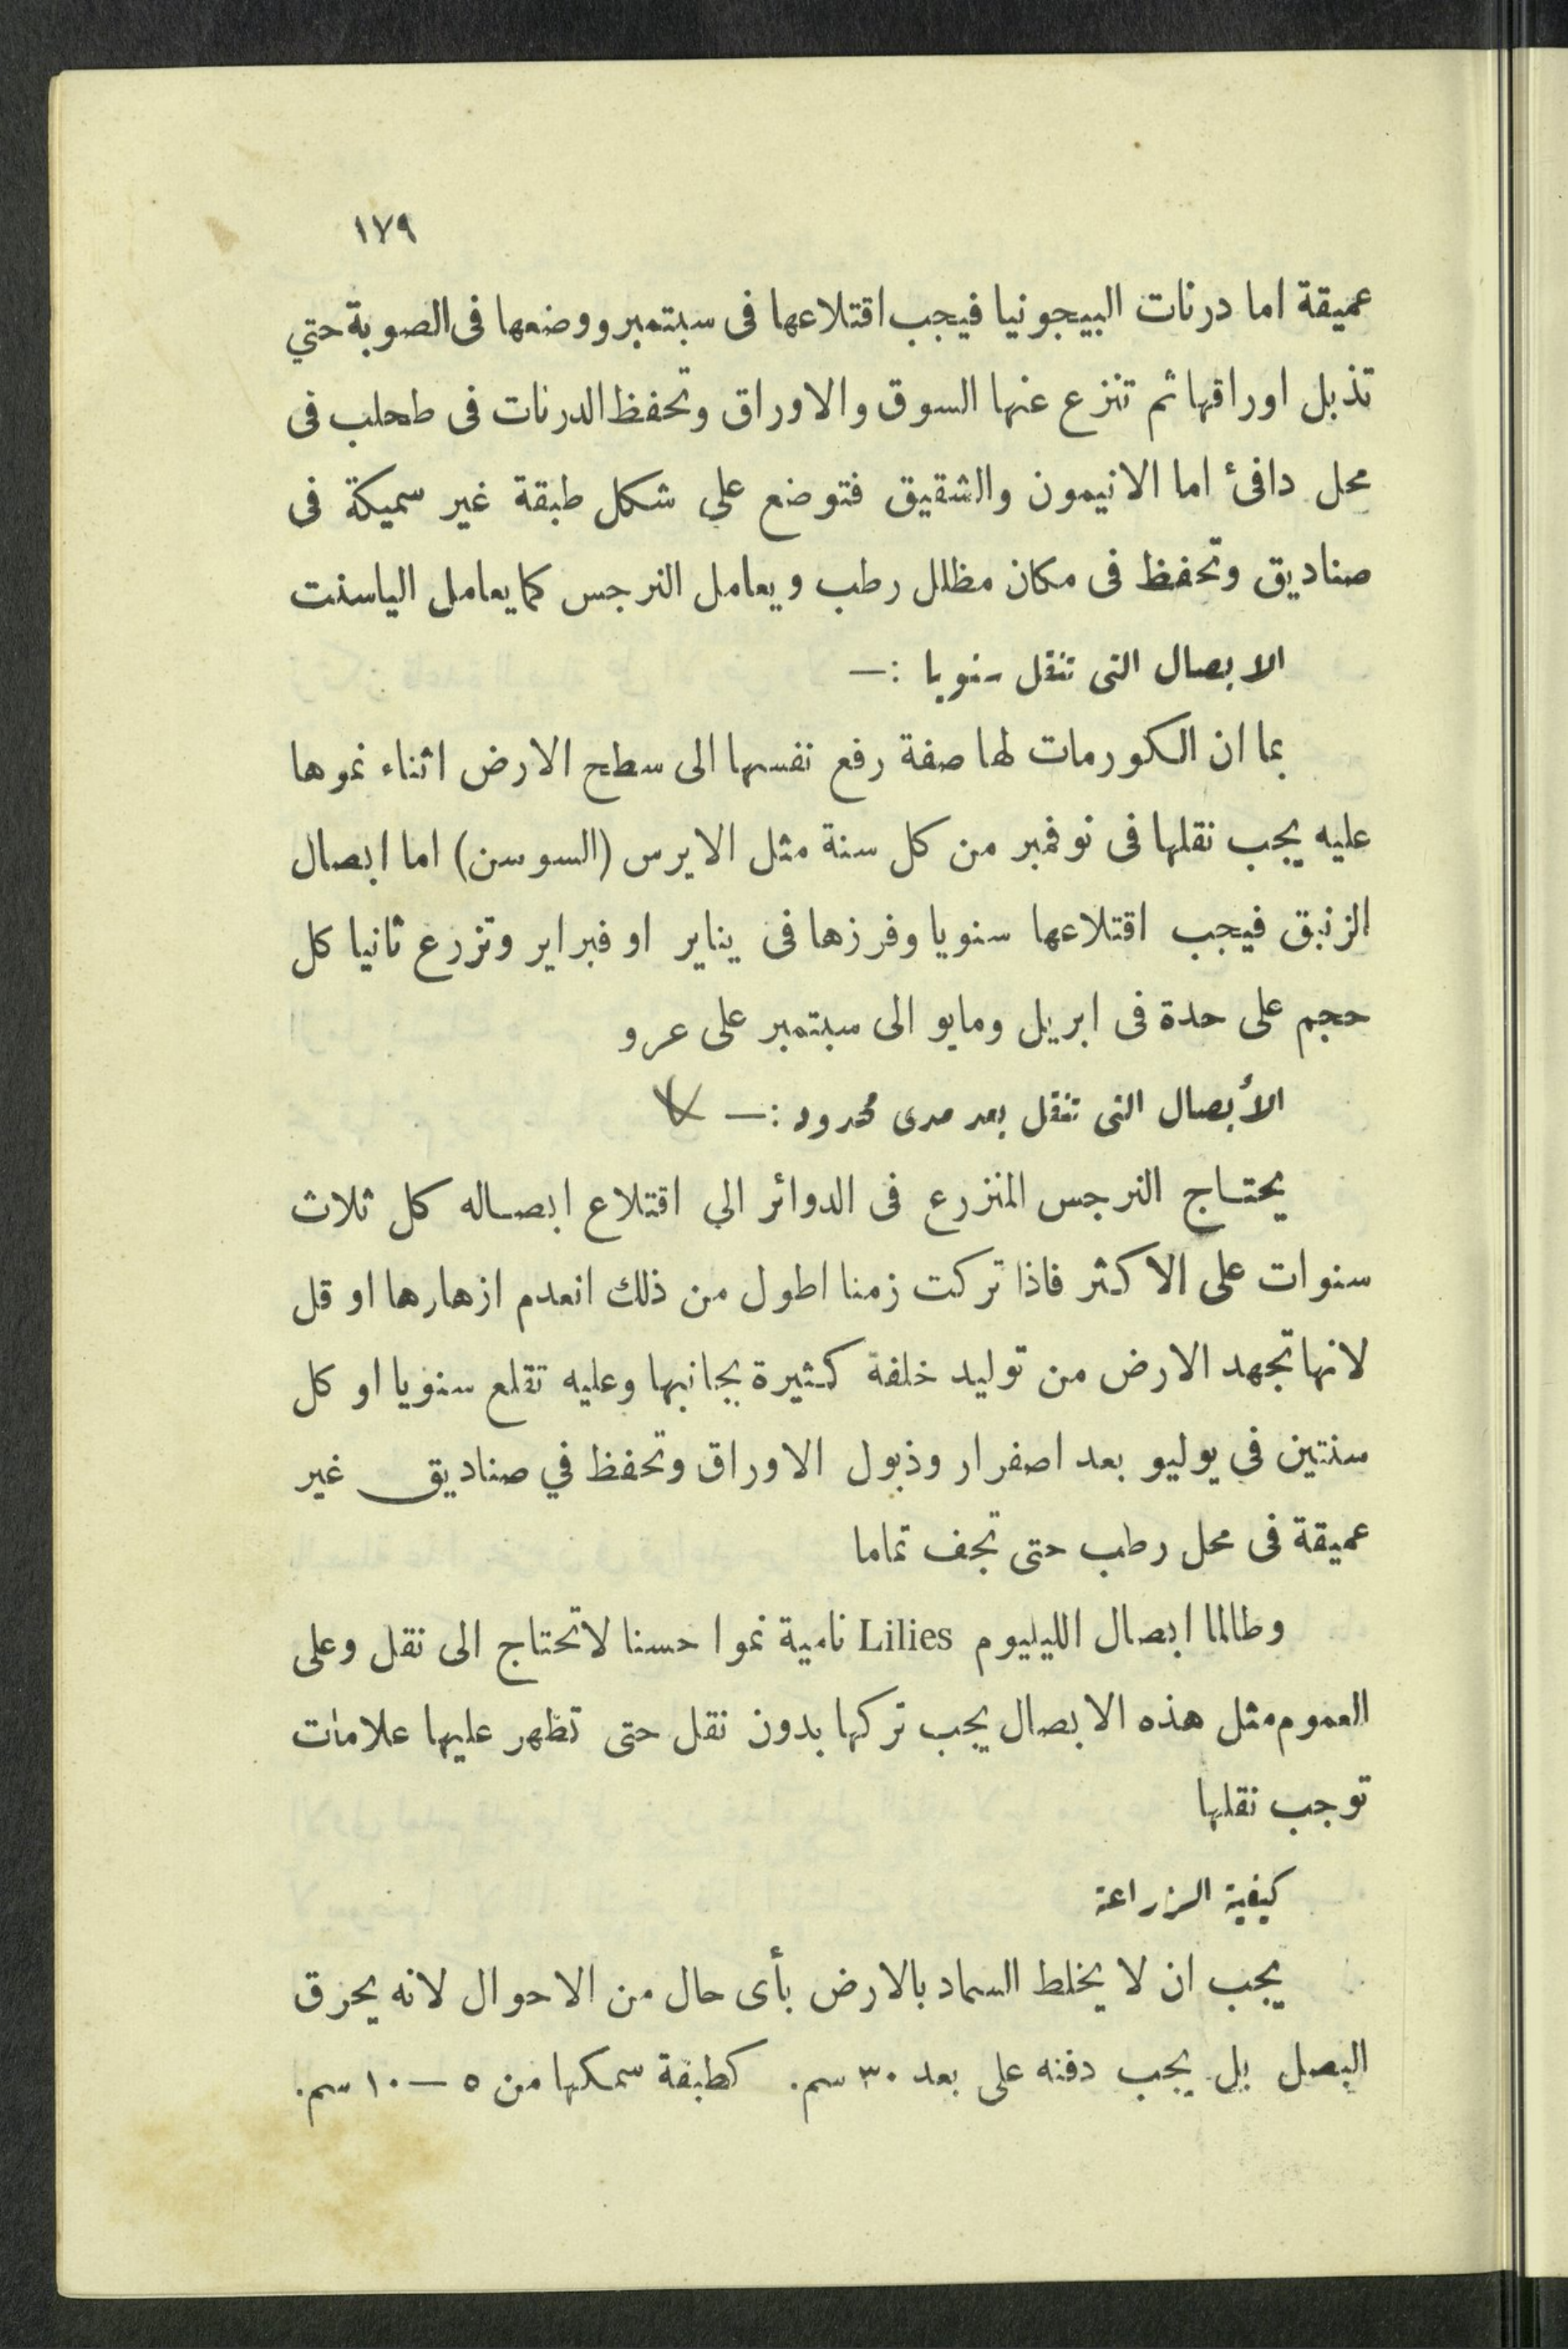 ١٧٩
عميقة اما درنات البيجونيا فيجب اقتلاعها فى سبتمبر ووضعها فى الصوبة حتي
تذبل اوراقها ثم تنزع عنها السوق والاوراق وتحفظ الدرنات فى طحلب فى
محل دافئ اما الانيمون والشقيق فتوضع علي شكل طبقة غير سميكة فى
صناديق وتحفظ فى مكان مظلل رطب ويعامل النرجس كما يعامل الياسنت
الابصال التى تنقل سنويا :—
بما ان الكورمات لها صفة رفع نفسها الى سطح الارض اثناء نموها
عليه يجب نقلها فى نوفمبر من كل سنة مثل الايرس (السوسن) اما ابصال
الزنبق فيجب اقتلاعها سنويا وفرزها فى يناير او فبراير وتزرع ثانيا كل
حجم على حدة فى ابريل ومايو الى سبتمبر على عرو
الأبصال التى تنقل بعد مدى محدود :—
يحتاج النرجس المنزرع فى الدوائر الي اقتلاع ابصاله كل ثلاث
سنوات على الاكثر فاذا تركت زمنا اطول من ذلك انعدم ازهارها او قل
لانها تجهد الارض من توليد خلفة كثيرة بجانبها وعليه تقلع سنويا او كل
سنتين فى يوليو بعد اصفرار وذبول الاوراق وتحفظ في صناديق غير
عميقة فى محل رطب حتى تجف تماما
وطالما ابصال الليليوم Lilies نامية نموا حسنا لاتحتاج الى نقل وعلى
العموم مثل هذه الابصال يجب تركها بدون نقل حتى تظهر عليها علامات
توجب نقلها
كيفية الزراعة
يجب ان لا يخلط السماد بالارض بأى حال من الاحوال لانه يحرق
البصل بل يجب دفنه على بعد ٣٠ سم. كطبقة سمكها من ٥ — ١٠ سم.